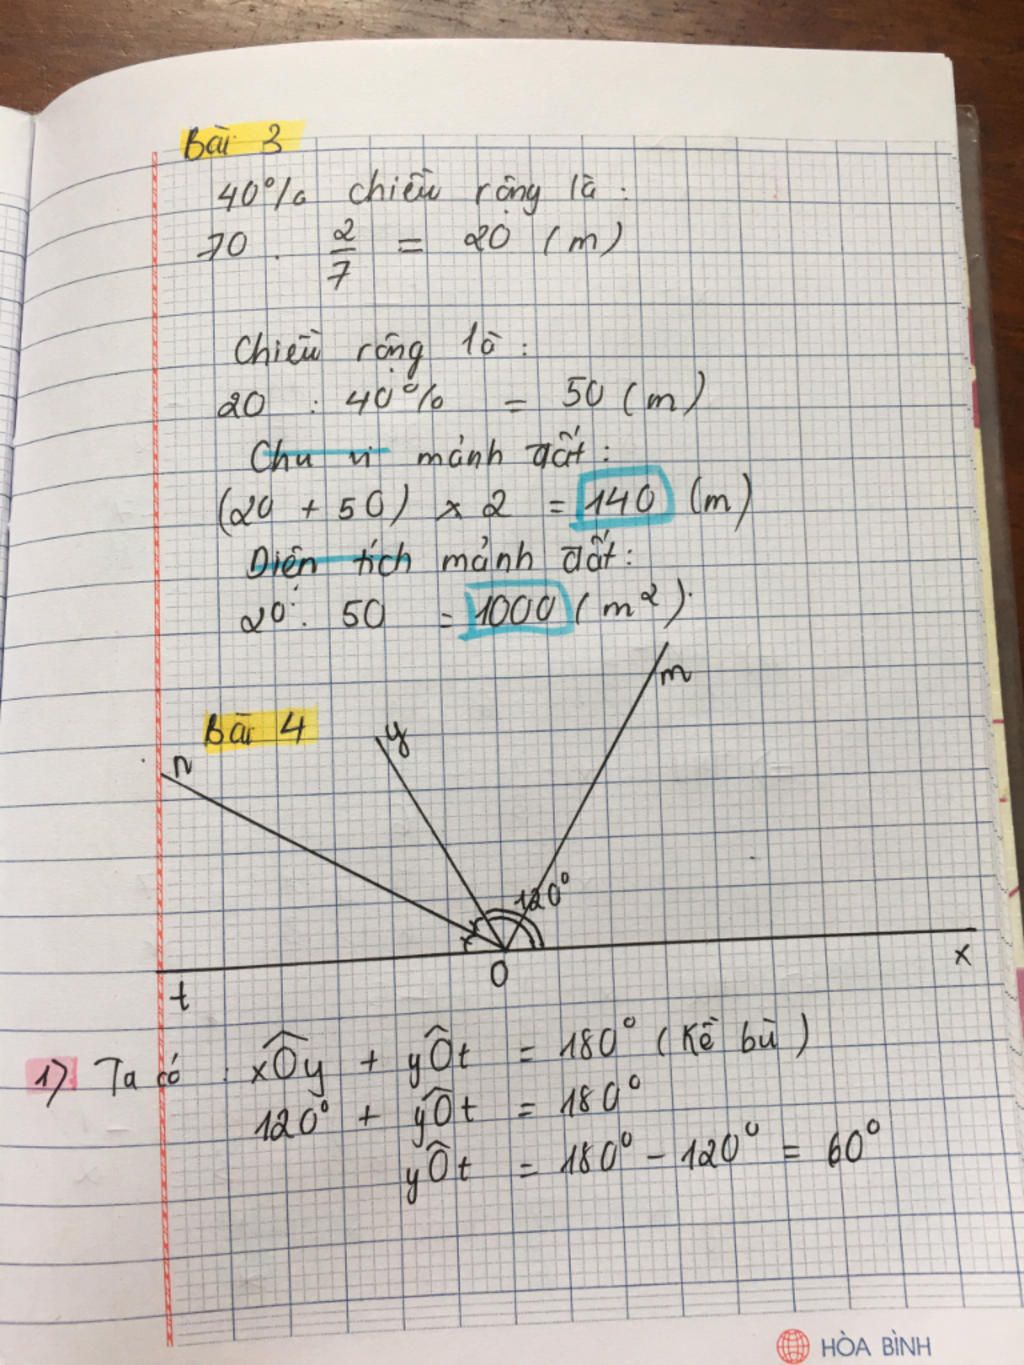 Bài 3
40% chiều rộng là :
70 . 2/7 = 20 (m)
Chiều rộng là :
20 : 40% = 50 (m)
Chu vi mảnh đất :
(20 + 50) x 2 = 140 (m)
Diện tích mảnh đất :
20 . 50 = 1000 (m²).
m
Bài 4
y
n
120°
O
x
t
1) Ta có : xÔy + yÔt = 180° (Kề bù)
120° + yÔt = 180°
yÔt = 180° - 120° = 60°
HÒA BÌNH